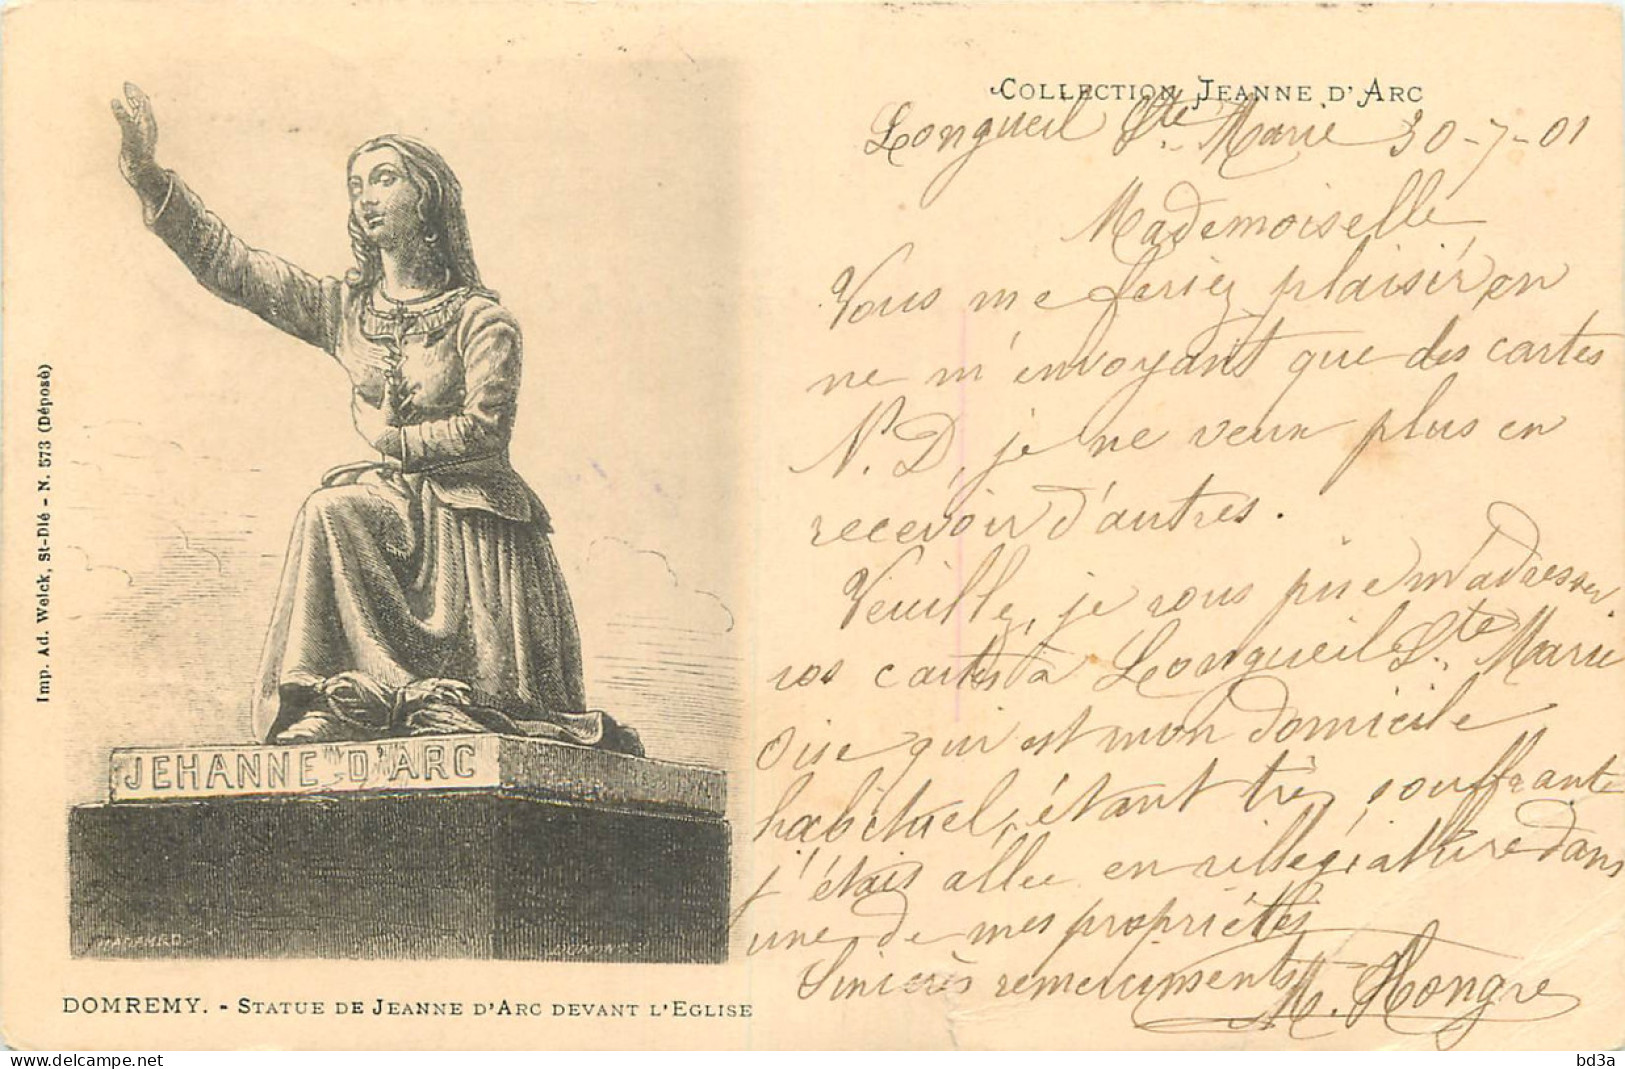 COLLECTION JEANNE D'ARC
Longueil Ste Marie 30-7-01
Mademoiselle
Vous me feriez plaisir, en
ne m'envoyant que des cartes
N.D, je ne veux plus en
recevoir d'autres.
Veuillez, je vous prie m'adresser
vos cartes à Longueil Ste Marie
Oise qui est mon domicile
habituel, étant très souffrante
j'étais allée en villégiature dans
une de mes propriétés
Sincères remerciments
M. Hongre
Imp. Ad. Weick, St-Dié - N. 573 (Déposé)
JEHANNE D'ARC
DOMREMY. - STATUE DE JEANNE D'ARC DEVANT L'EGLISE
bd3a